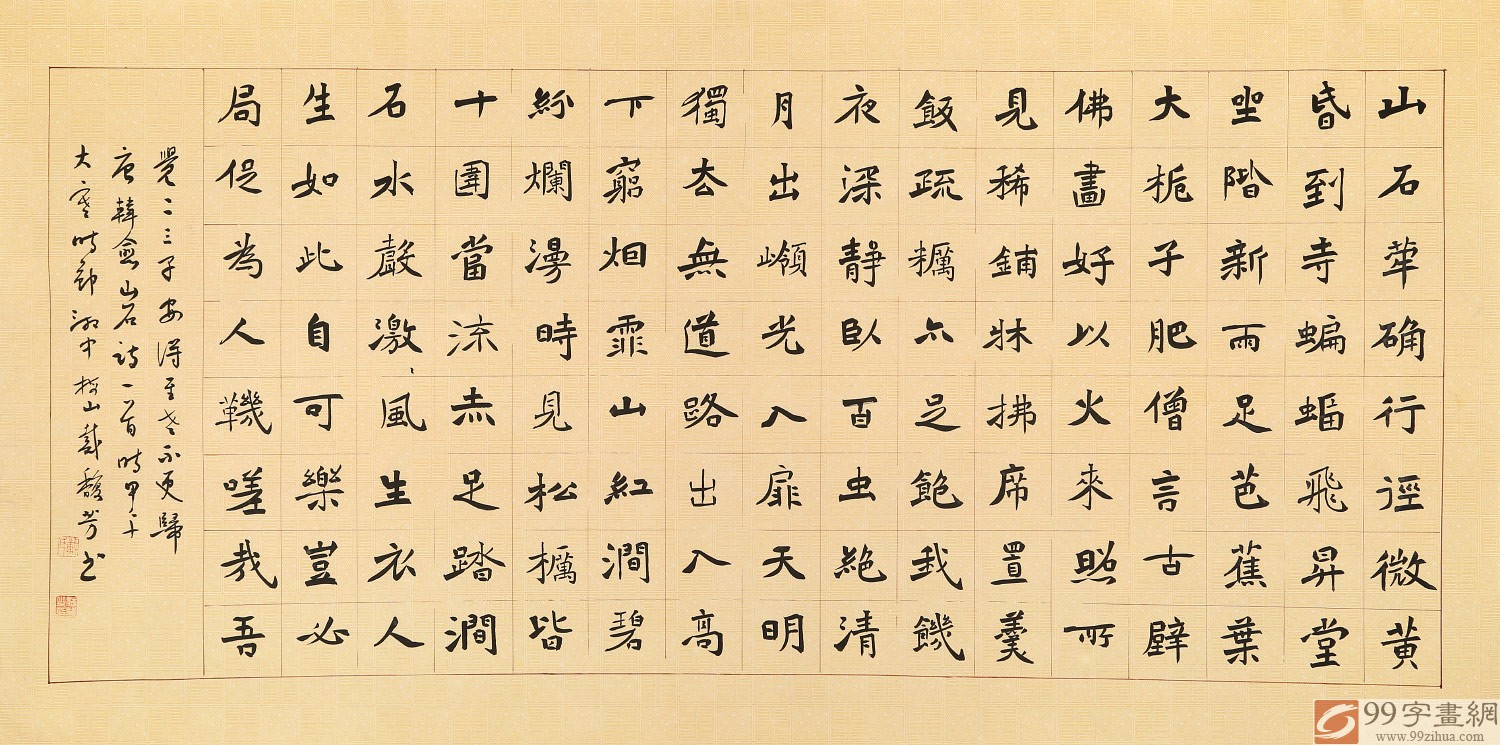 山石犖确行徑微黃
昏到寺蝙蝠飛昇堂
坐階新雨足芭蕉葉
大梔子肥僧言古壁
佛畫好以火來照所
見稀鋪牀拂席置羹
飯疏糲亦足飽我饑
夜深靜臥百虫絕清
月出嶺光入扉天明
獨去無道路出入高
下窮烟霏山紅澗碧
紛爛漫時見松櫪皆
十圍當流赤足踏澗
石水聲激〻風生衣人
生如此自可樂豈必
局促為人鞿嗟哉吾
黨二三子安得至老不更歸
唐韓愈山石詩一首時甲午
大寒時節浙中柯山戴馥芳书
99字畫網
www.99zihua.com